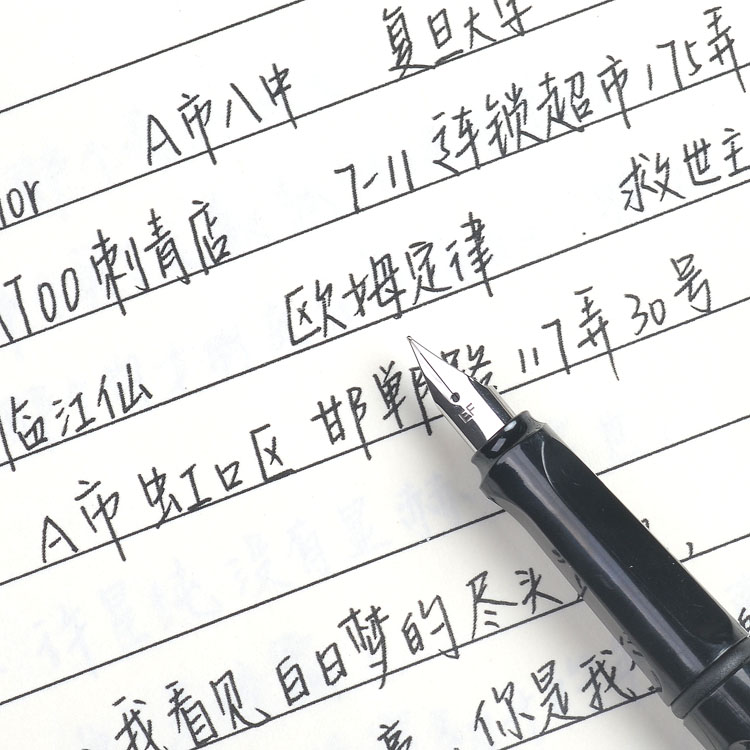 A市八中 复旦大学
TOO刺青店 7-11 连锁超市175弄
临江仙 欧姆定律 救世主
A市虹口区 邯郸路117弄30号
我看见白日梦的尽头
，你是我